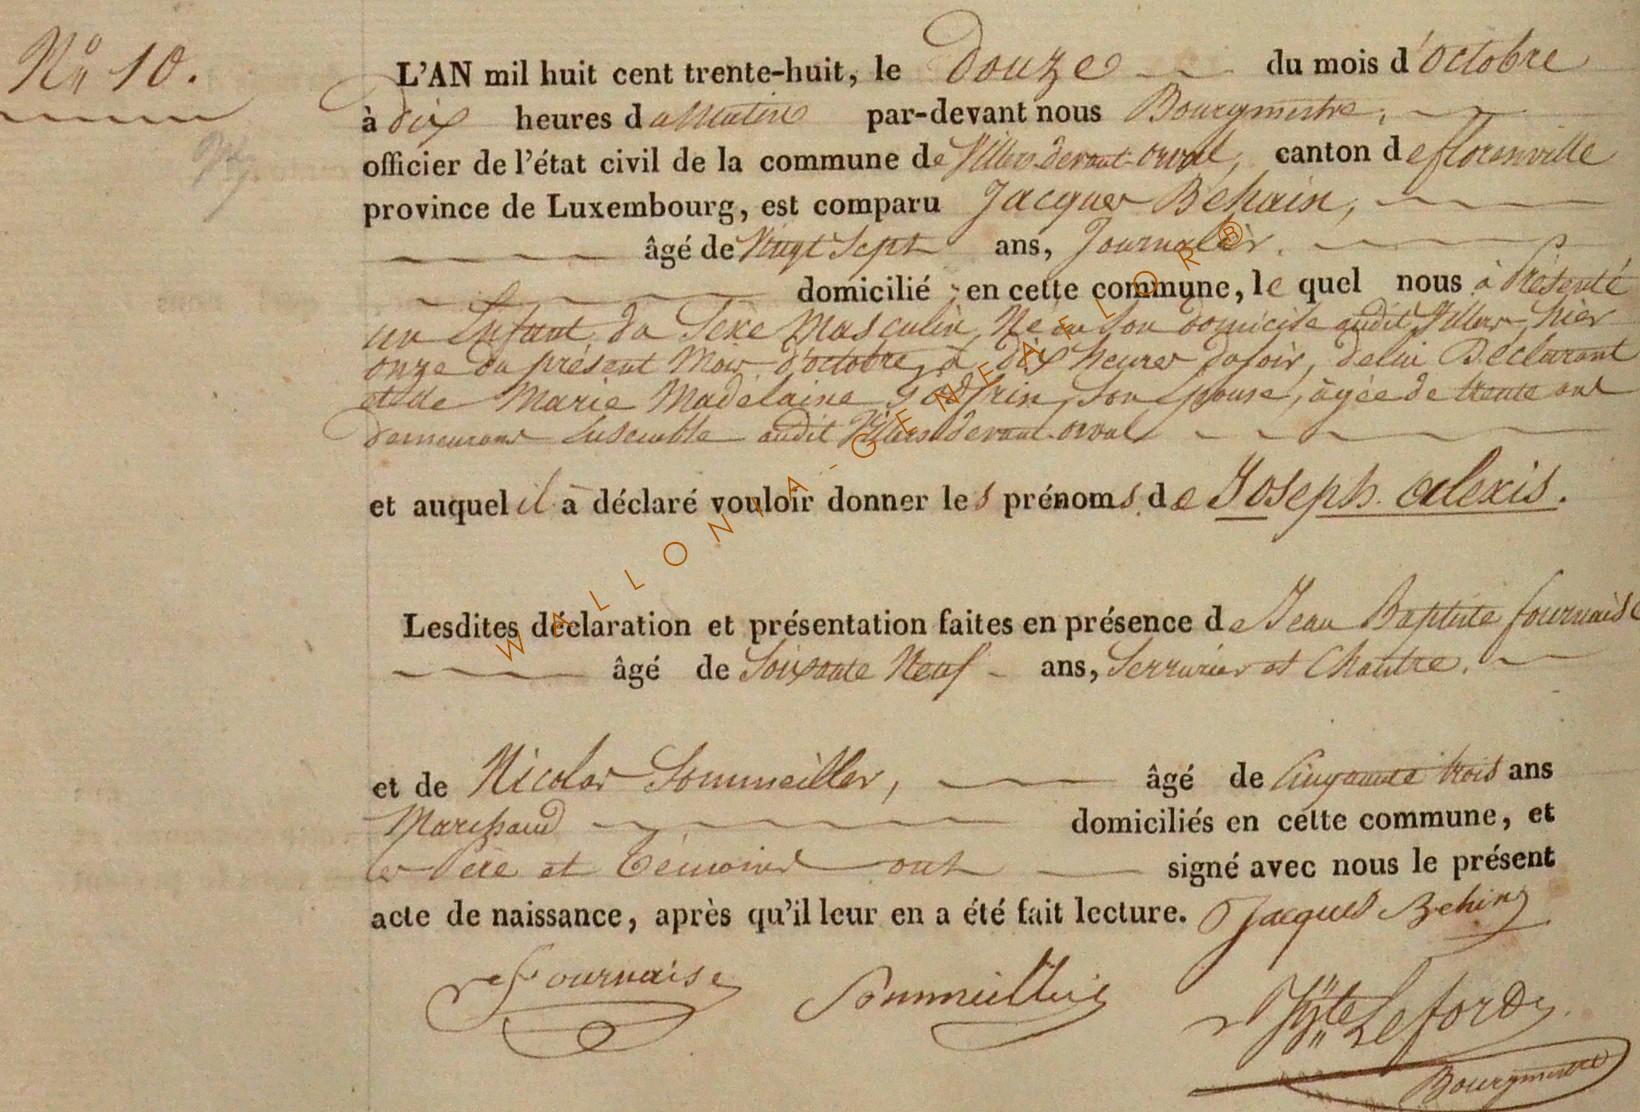 N° 10.
L'AN mil huit cent trente-huit, le Douze du mois d'octobre
à dix heures du Matin par-devant nous Bourgmestre,
officier de l'état civil de la commune de Villers devant orval, canton de florenville
province de Luxembourg, est comparu Jacques Behain,
âgé de Vingt Sept ans, Journalier.
domicilié en cette commune, le quel nous à Présenté
un Enfant du Sexe Masculin, Né en son domicile audit Villers, hier
onze du présent Mois d'octobre, à dix heures du soir, de lui Déclarant
et de Marie Madelaine godfrin, son Epouse, âgée de trente ans
demeurans Ensemble audit Villers devant orval
et auquel il à déclaré vouloir donner les prénoms de Joseph alexis.
Lesdites déclaration et présentation faites en présence de Jean Baptiste fournaise
âgé de Soixante Neuf ans, Serrurier et Chantre.
et de Nicolas Sommeiller, âgé de Cinquante trois ans
Marchand domiciliés en cette commune, et
les Père et Témoins ont signé avec nous le présent
acte de naissance, après qu'il leur en a été fait lecture. Jacques Behin
Fournaise Sommeillier Hyte Leford
Bourgmestre
WALLONIA-GENEAFLOR®